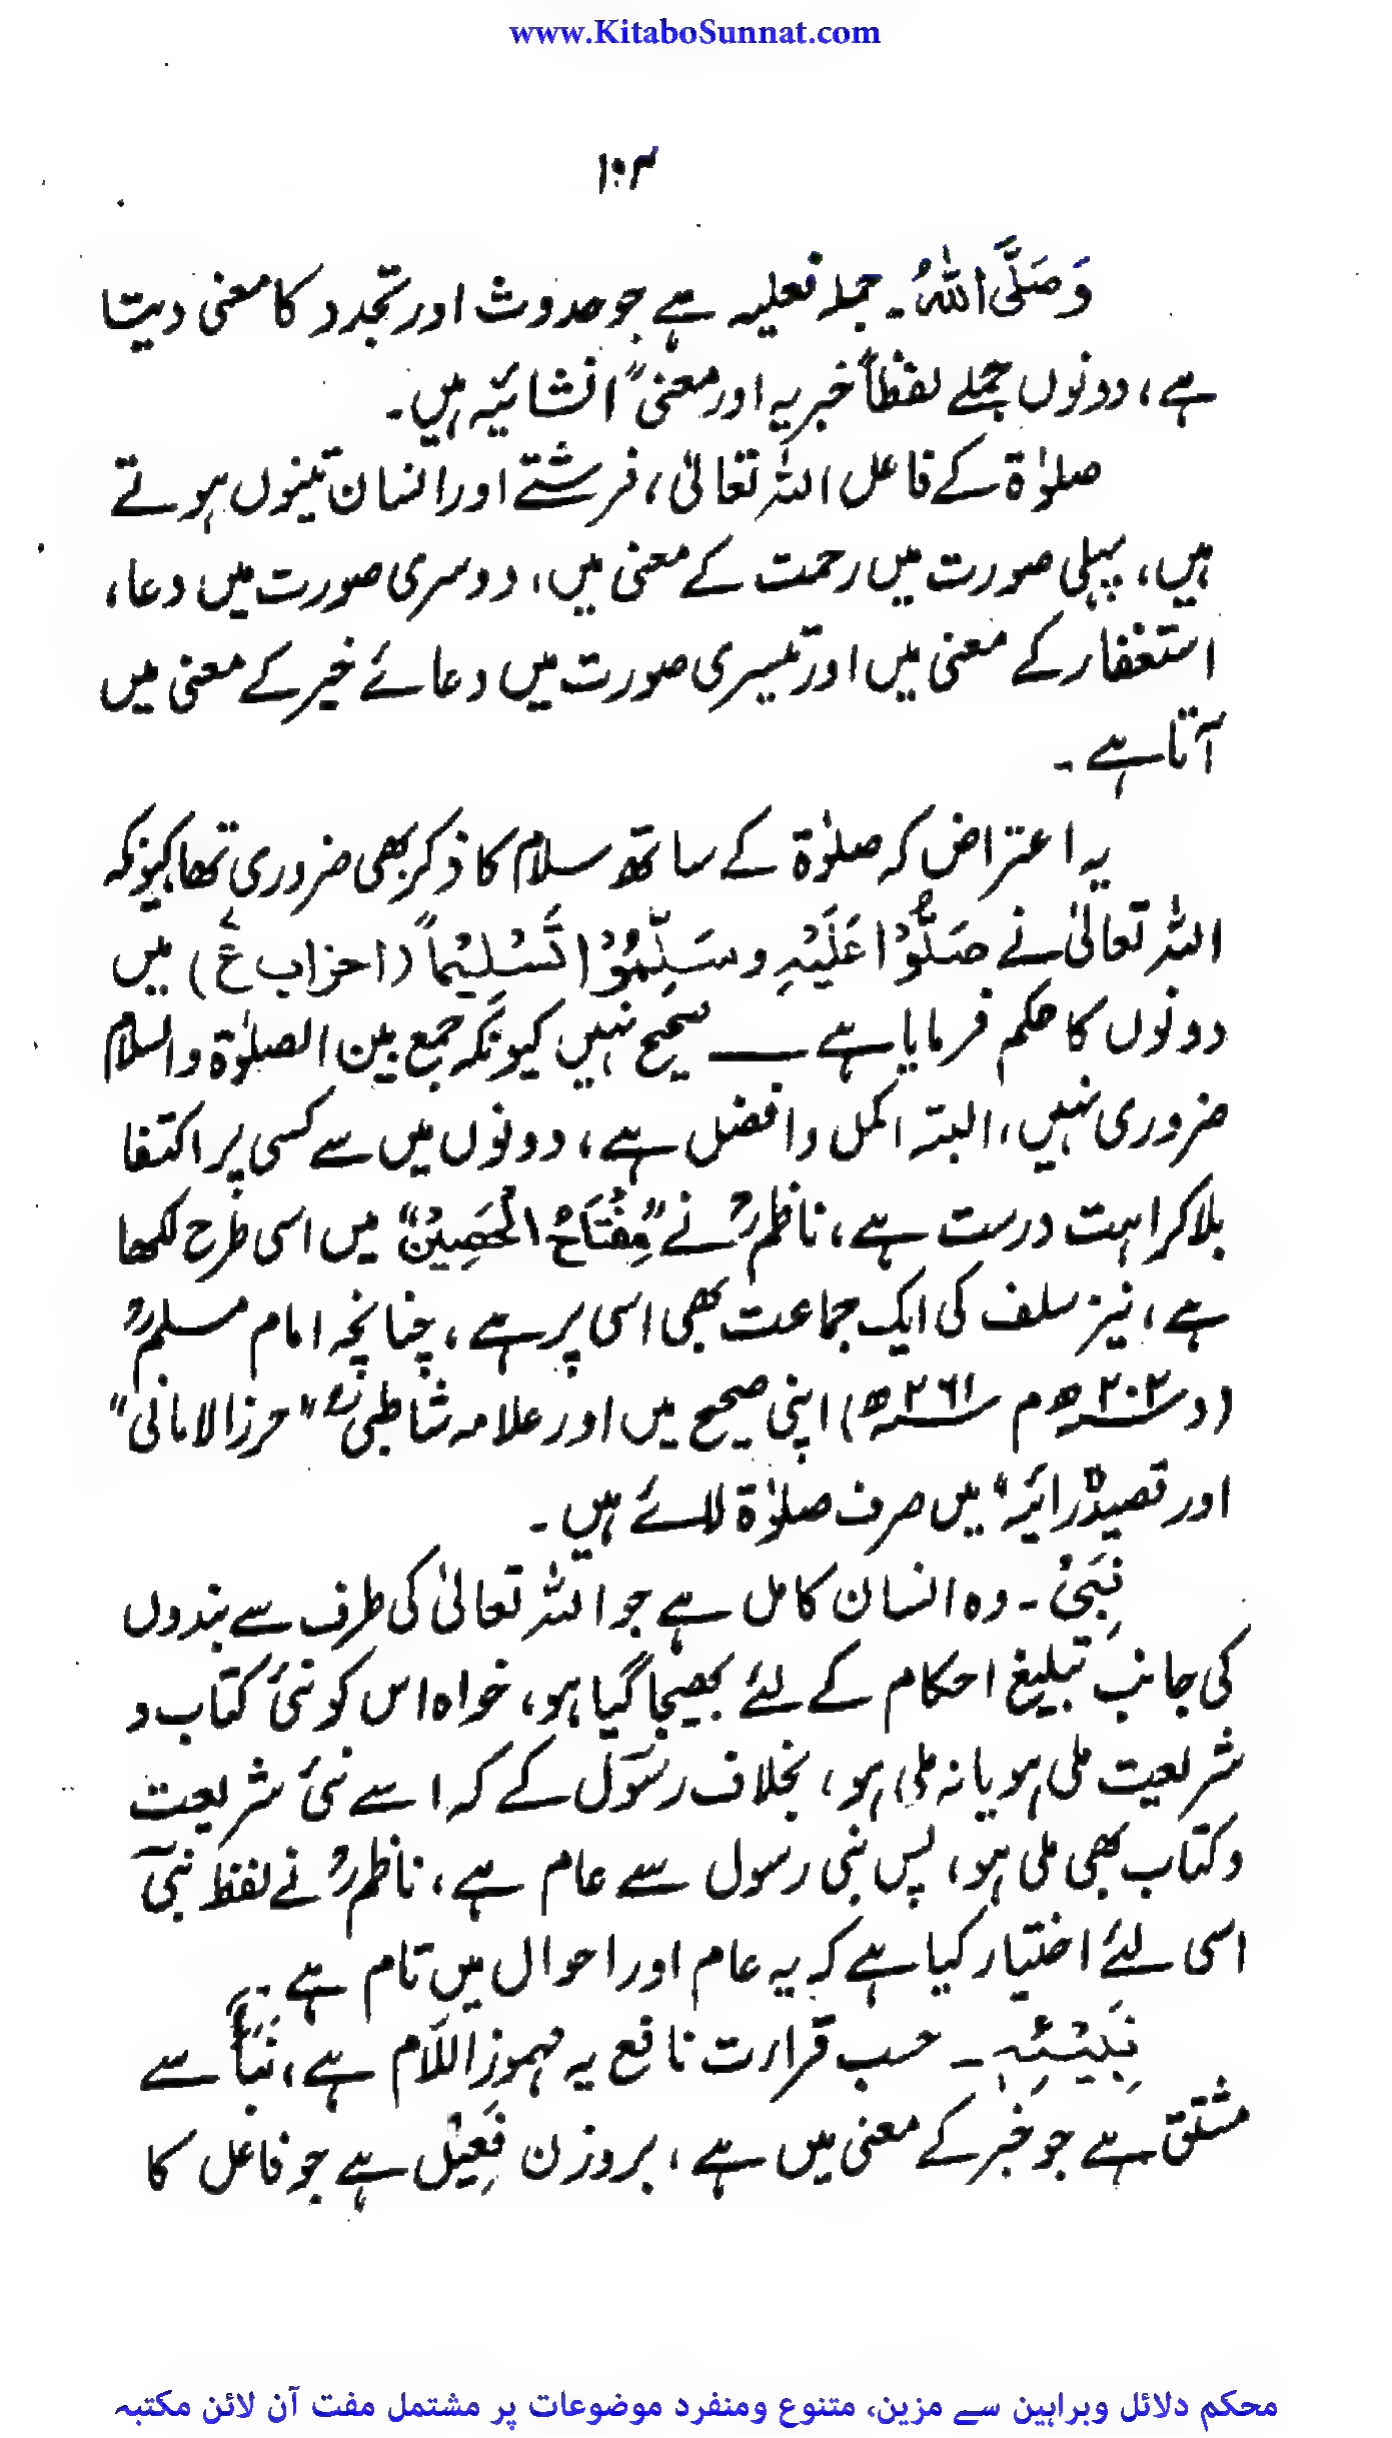 www.KitaboSunnat.com
۱۰۴
وَصَلَّی اللّٰہُ۔ جملہ فعلیہ ہے جو حدوث اور تجدد کا معنی دیتا
ہے، دونوں جملے لفظاً خبریہ اور معنیً انشائیہ ہیں۔
صلوٰۃ کے فاعل اللہ تعالیٰ، فرشتے اور انسان تینوں ہوتے
ہیں، پہلی صورت میں رحمت کے معنی میں، دوسری صورت میں دعا،
استغفار کے معنی میں اور تیسری صورت میں دعائے خیر کے معنی میں
آتا ہے۔
یہ اعتراض کہ صلوٰۃ کے ساتھ سلام کا ذکر بھی ضروری تھا کیونکہ
اللہ تعالیٰ نے صَلُّوْا عَلَیْہِ وسَلِّمُوْا تَسْلِیْماً (احزاب ع) میں
دونوں کا حکم فرمایا ہے ــــ صحیح نہیں کیونکہ جمع بین الصلوٰۃ والسلام
ضروری نہیں، البتہ اکمل وافضل ہے، دونوں میں سے کسی پر اکتفا
بلا کراہت درست ہے، ناظمؒ نے "مِفْتَاحُ الْحَصِیْن" میں اسی طرح لکھا
ہے، نیز سلف کی ایک جماعت بھی اسی پر ہے، چنانچہ امام مسلمؒ
(د ۲۰۲ھ م ۲۶۱ھ) اپنی صحیح میں اور علامہ شاطبیؒ "حرز الامانی"
اور قصیدہ رائیہ" میں صرف صلوٰۃ لائے ہیں۔
نَبِیْ۔ وہ انسان کامل ہے جو اللہ تعالیٰ کی طرف سے بندوں
کی جانب تبلیغ احکام کے لئے بھیجا گیا ہو، خواہ اس کو نئی کتاب و
شریعت ملی ہو یا نہ ملی ہو، بخلاف رسول کے کہ اسے نئی شریعت
وکتاب بھی ملی ہو، پس نبی رسول سے عام ہے، ناظمؒ نے لفظ نبی
اسی لئے اختیار کیا ہے کہ یہ عام اور احوال میں تام ہے۔
نَبِیْئِہٖ۔ حسب قرارت نافع یہ مہموز اللام ہے، نَبَأٌ سے
مشتق ہے جو خبر کے معنی میں ہے، بروزن فَعِیْل ہے جو فاعل کا
محکم دلائل وبراہین سے مزین، متنوع ومنفرد موضوعات پر مشتمل مفت آن لائن مکتبہ